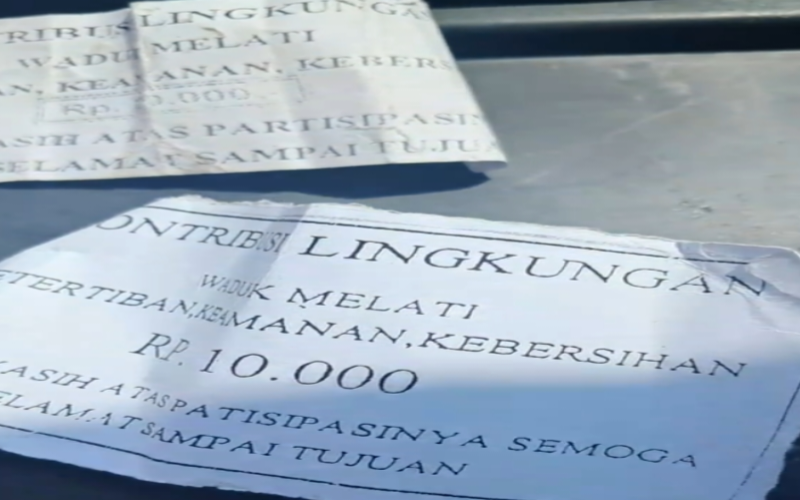 RIBUSI LINGKUNGAN
WADUK MELATI
AN, KEAMANAN, KEBERS
Rp. 10.000
ASIH ATAS PARTISIPASIN
SELAMAT SAMPAI TUJU
ONTRIBUSI LINGKUNGAN
WADUK MELATI
ETERTIBAN,KEAMANAN,KEBERSIHAN
RP. 10.000
KASIH ATAS PATISIPASINYA SEMOGA
ELAMAT SAMPAI TUJUAN